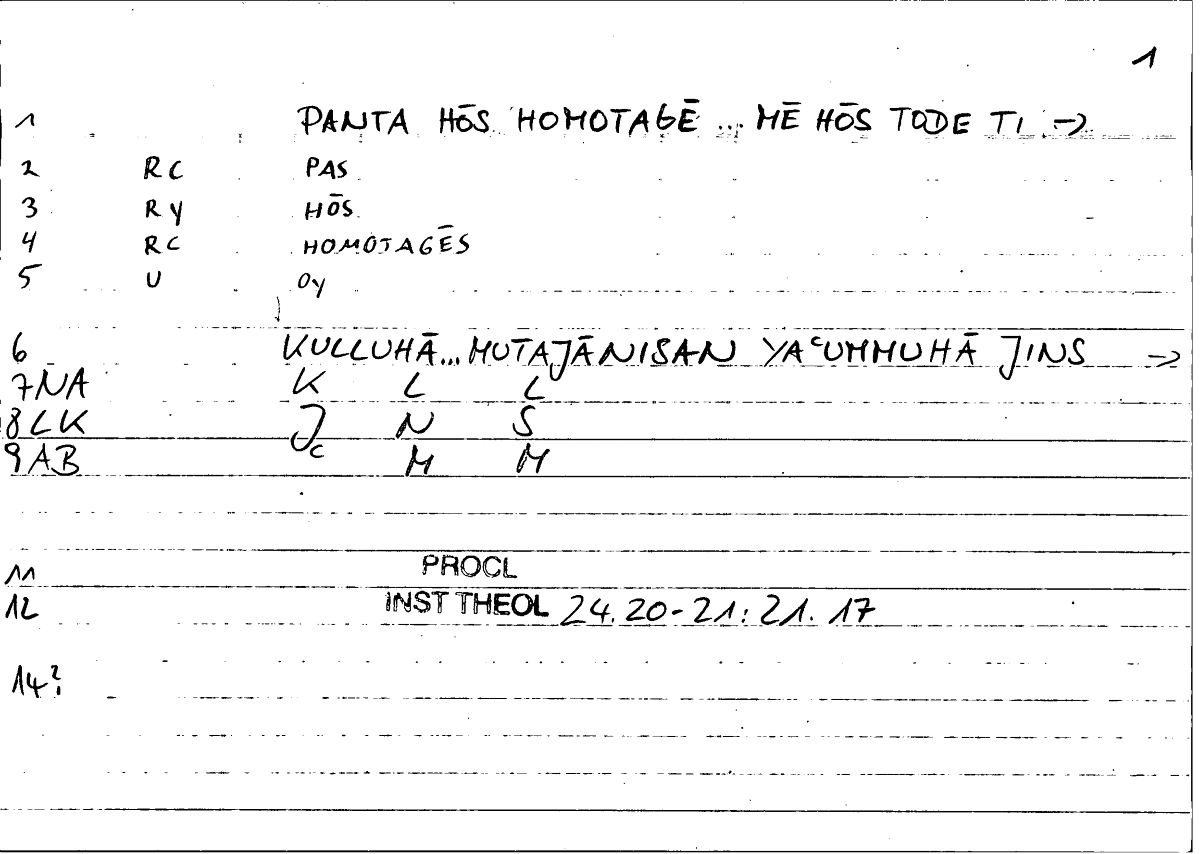 1
1 PANTA HŌS HOMOTAGĒ ... MĒ HŌS TODE TI ->
2 RC PAS
3 RY HŌS
4 RC HOMOTAGĒS
5 U OY
6 KULLUHĀ... MUTAJĀNISAN YAᶜUMMUHĀ JINS ->
7NA K L L
8LK J N S
9AB ᶜ M M
11 PROCL
12 INST THEOL 24.20-21:21.17
14?